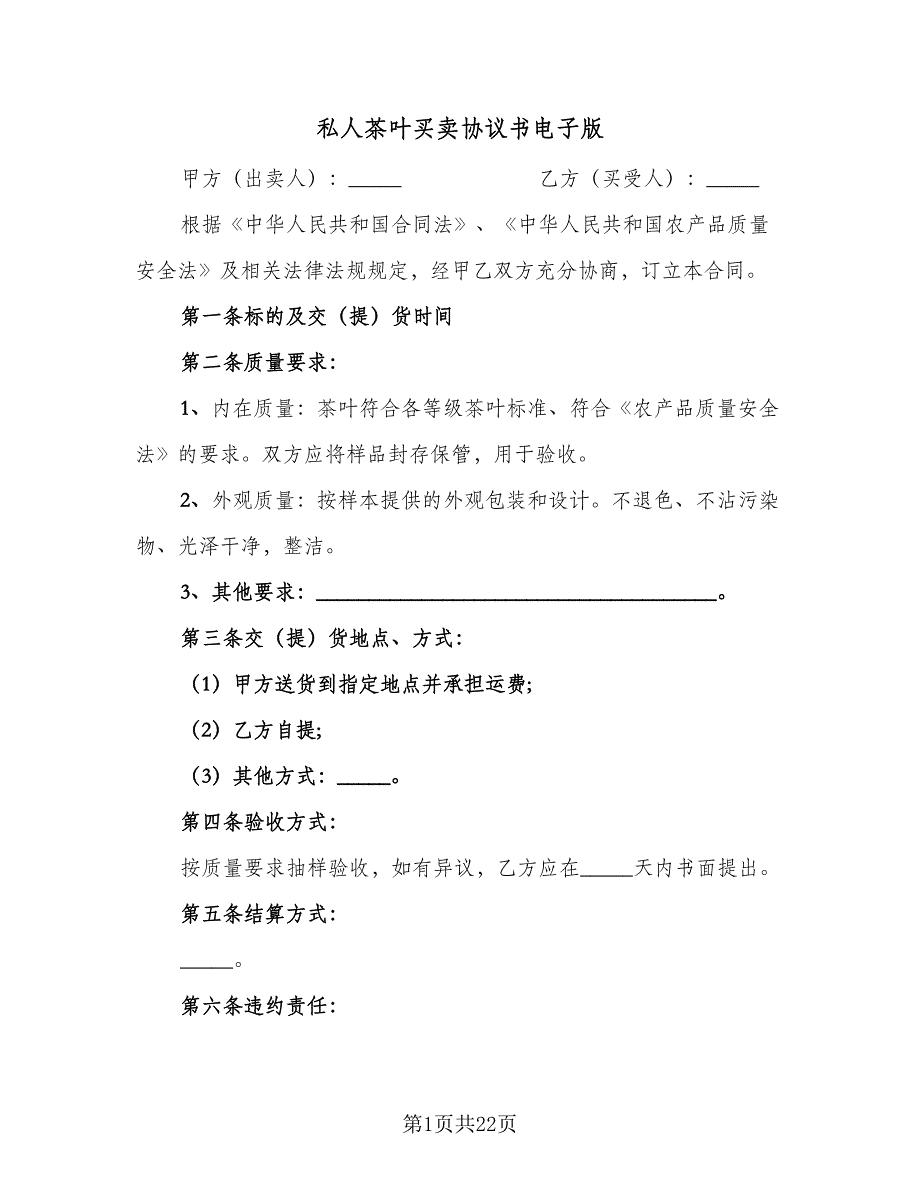 私人茶叶买卖协议书电子版
甲方（出卖人）：_____ 乙方（买受人）：_____
根据《中华人民共和国合同法》、《中华人民共和国农产品质量
安全法》及相关法律法规规定，经甲乙双方充分协商，订立本合同。
第一条标的及交（提）货时间
第二条质量要求：
1、内在质量：茶叶符合各等级茶叶标准、符合《农产品质量安全
法》的要求。双方应将样品封存保管，用于验收。
2、外观质量：按样本提供的外观包装和设计。不退色、不沾污染
物、光泽干净，整洁。
3、其他要求：______________________________________。
第三条交（提）货地点、方式：
（1）甲方送货到指定地点并承担运费;
（2）乙方自提;
（3）其他方式：_____。
第四条验收方式：
按质量要求抽样验收，如有异议，乙方应在_____天内书面提出。
第五条结算方式：
_____。
第六条违约责任：
第1页共22页